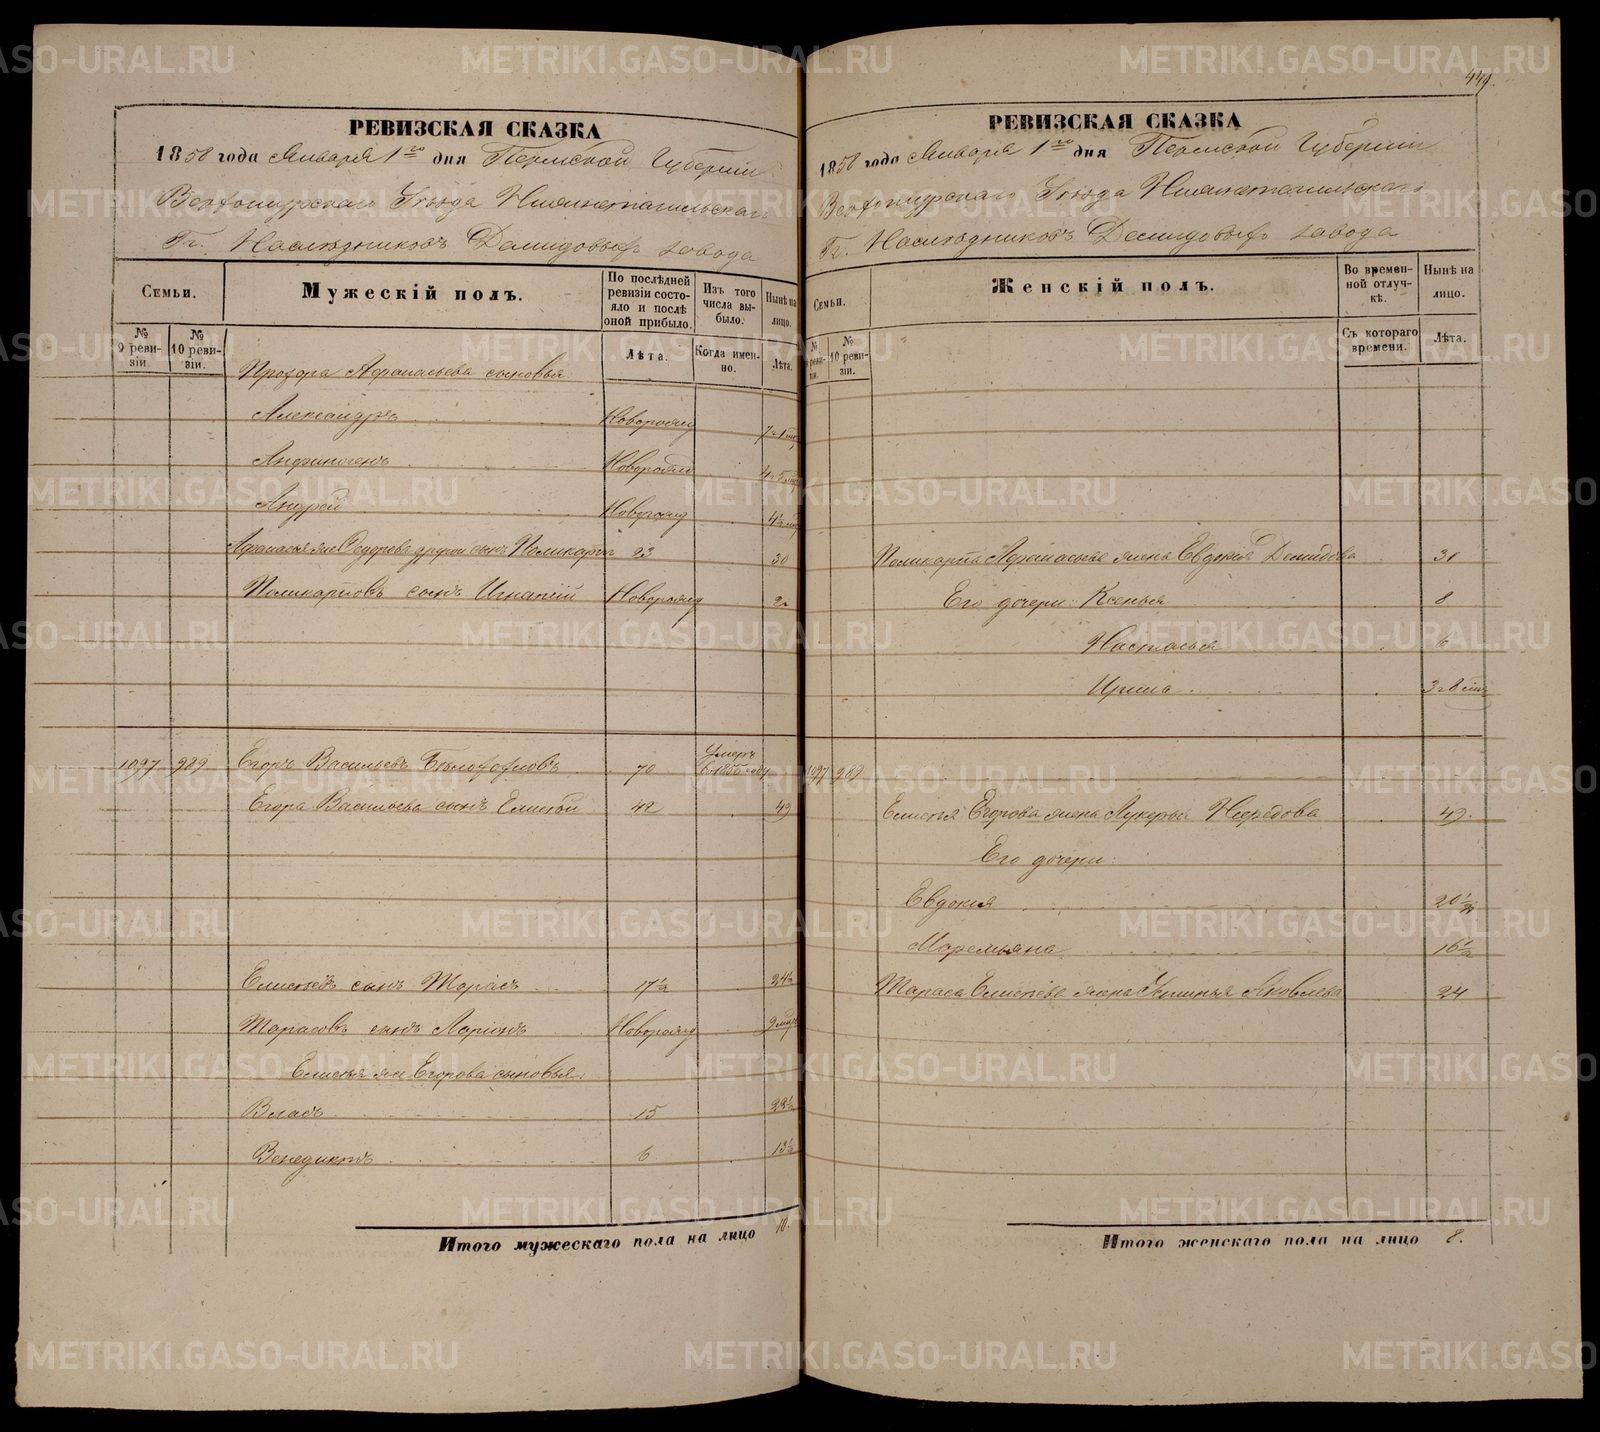 РЕВИЗСКАЯ СКАЗКА
1858 года Января 1го дня Пермской Губернии
Верхотурскаго Уезда Нижнетагильскаго
Гг. Наследниковъ Демидовыхъ завода
Семьи.
Мужескій полъ.
По послѣдней ревизіи состояло и послѣ оной прибыло.
Изъ того числа выбыло.
Нынѣ на лицо.
№ 9 ревизіи.
№ 10 ревизіи.
Лѣта.
Когда именно.
Лѣта.
Прохора Афанасьева сыновья
Александръ Новорожд
Анфиногенъ Новорожд
Андрей Новорожд
Афанасья же Федорова другой сынъ Поликарпъ 23 30
Поликарповъ сынъ Игнатій Новорожд 2
1097 989 Егоръ Васильевъ 70 Умеръ въ 1855 году
Егора Васильева сынъ Елисей 42 49
Елисеевъ сынъ Тарасъ 17½ 24½
Тарасовъ сынъ Ларіонъ Новорожд 9 мѣс
Елисея же Егорова сыновья:
Власъ 15 22½
Венедиктъ 6 13½
Итого мужескаго пола на лицо 10.
449.
РЕВИЗСКАЯ СКАЗКА
1858 года Января 1го дня Пермской Губерніи
Верхотурскаго Уезда Нижнетагильскаго
Гг. Наследниковъ Демидовыхъ завода
Семьи.
Женскій полъ.
Во временной отлучкѣ.
Нынѣ на лицо.
№ 9 ревизіи.
№ 10 ревизіи.
Съ котораго времени.
Лѣта.
Поликарпа Афанасьева жена Евдокія Демидова 30
Его дочери: Ксенья 8
Настасья 6
Ирина 3 г 8 мѣс
1097 989
Елисея Егорова жена Лукерья 49.
Его дочери:
Евдокія 20½
Маремьяна 16½
Тараса Елисеева жена Устинья Яковлева 24
Итого женскаго пола на лицо 8.
METRIKI.GASO-URAL.RU